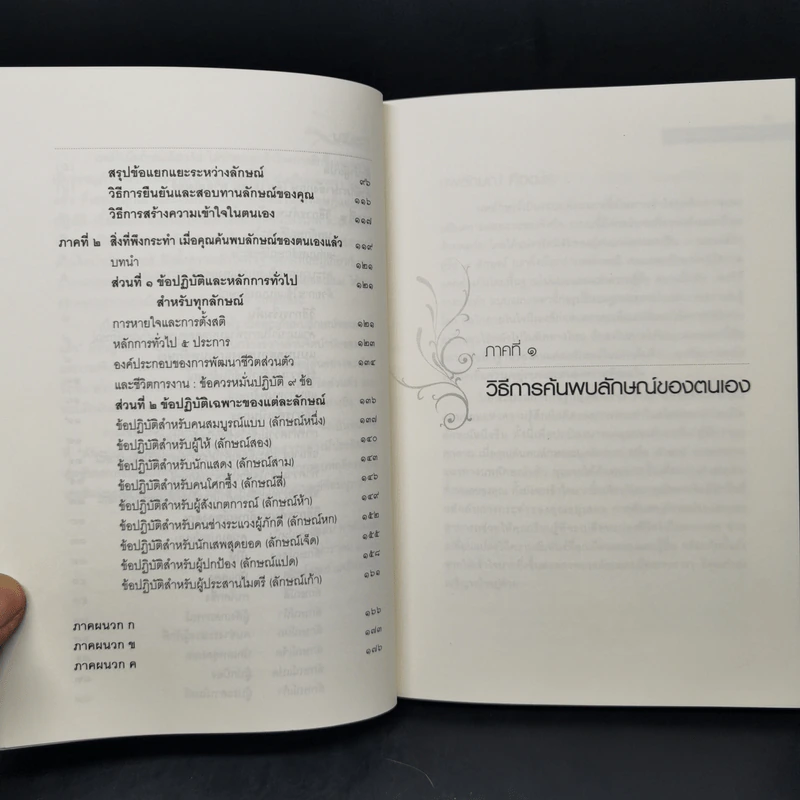 สรุปข้อแยกแยะระหว่างลักษณ์ ๙๖
วิธีการยืนยันและสอบทานลักษณ์ของคุณ ๑๑๖
วิธีการสร้างความเข้าใจในตนเอง ๑๑๗
ภาคที่ ๒ สิ่งที่พึงกระทำ เมื่อคุณค้นพบลักษณ์ของตนเองแล้ว ๑๑๙
บทนำ ๑๒๑
ส่วนที่ ๑ ข้อปฏิบัติและหลักการทั่วไป ๑๒๑
สำหรับทุกลักษณ์
การหายใจและการตั้งสติ ๑๒๑
หลักการทั่วไป ๕ ประการ ๑๒๓
องค์ประกอบของการพัฒนาชีวิตส่วนตัว ๑๓๔
และชีวิตการงาน : ข้อควรหมั่นปฏิบัติ ๙ ข้อ
ส่วนที่ ๒ ข้อปฏิบัติเฉพาะของแต่ละลักษณ์ ๑๓๖
ข้อปฏิบัติสำหรับคนสมบูรณ์แบบ (ลักษณ์หนึ่ง) ๑๓๗
ข้อปฏิบัติสำหรับผู้ให้ (ลักษณ์สอง) ๑๔๐
ข้อปฏิบัติสำหรับนักแสดง (ลักษณ์สาม) ๑๔๓
ข้อปฏิบัติสำหรับคนโศกซึ้ง (ลักษณ์สี่) ๑๔๖
ข้อปฏิบัติสำหรับผู้สังเกตการณ์ (ลักษณ์ห้า) ๑๔๙
ข้อปฏิบัติสำหรับคนช่างระแวงผู้ภักดี (ลักษณ์หก) ๑๕๒
ข้อปฏิบัติสำหรับนักเสพสุดยอด (ลักษณ์เจ็ด) ๑๕๕
ข้อปฏิบัติสำหรับผู้ปกป้อง (ลักษณ์แปด) ๑๕๘
ข้อปฏิบัติสำหรับผู้ประสานไมตรี (ลักษณ์เก้า) ๑๖๑
ภาคผนวก ก ๑๖๖
ภาคผนวก ข ๑๗๓
ภาคผนวก ค ๑๗๖
ภาคที่ ๑
วิธีการค้นพบลักษณ์ของตนเอง